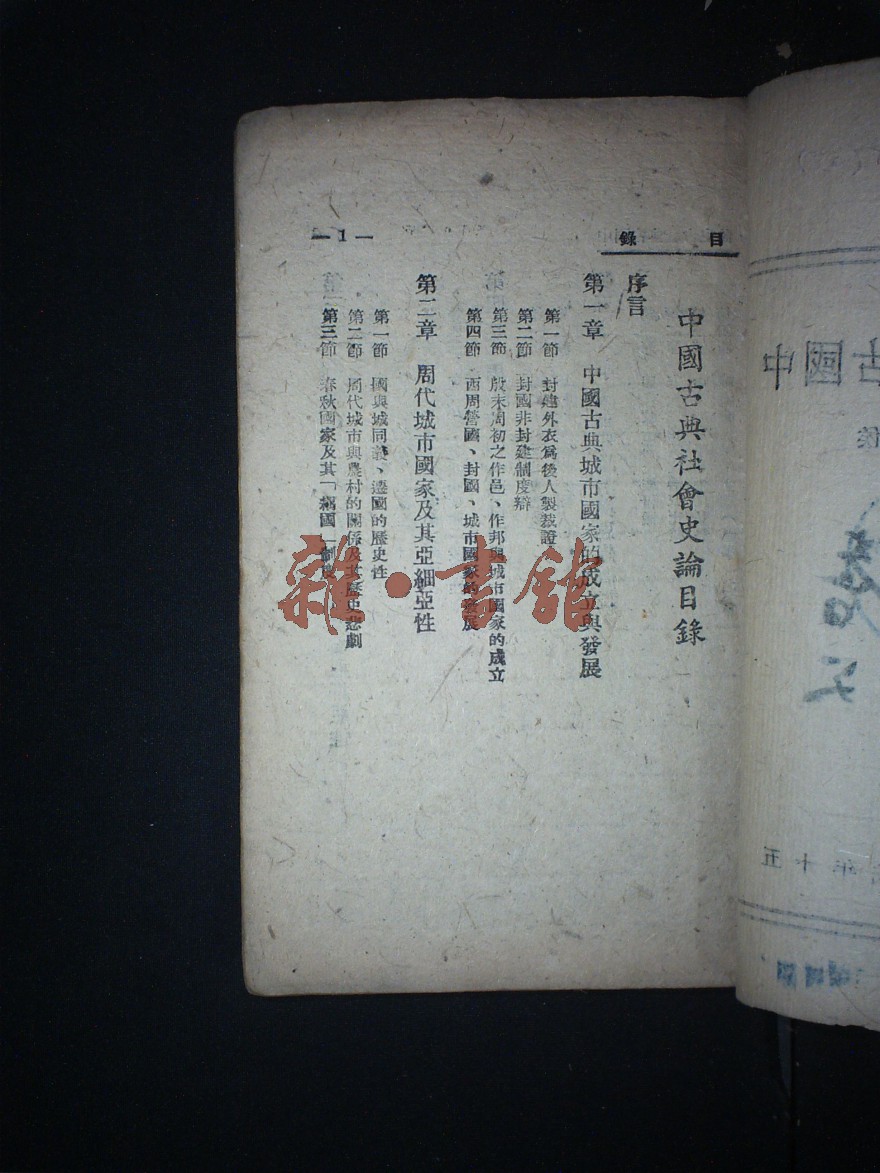 目錄
—1—
中國古典社會史論目錄
序言
第一章 中國古典城市國家的成立與發展
第一節 封建外衣為後人製裁證
第二節 封國非封建制度辯
第三節 殷末周初之作邑、作邦與城市國家的成立
第四節 西周營國、封國、城市國家的發展
第二章 周代城市國家及其亞細亞性
第一節 國與城同義、遷國的歷史性
第二節 周代城市與農村的關係及其歷史悲劇
第三節 春秋國家及其「 國」制度
雜·書館
中國古
五十年